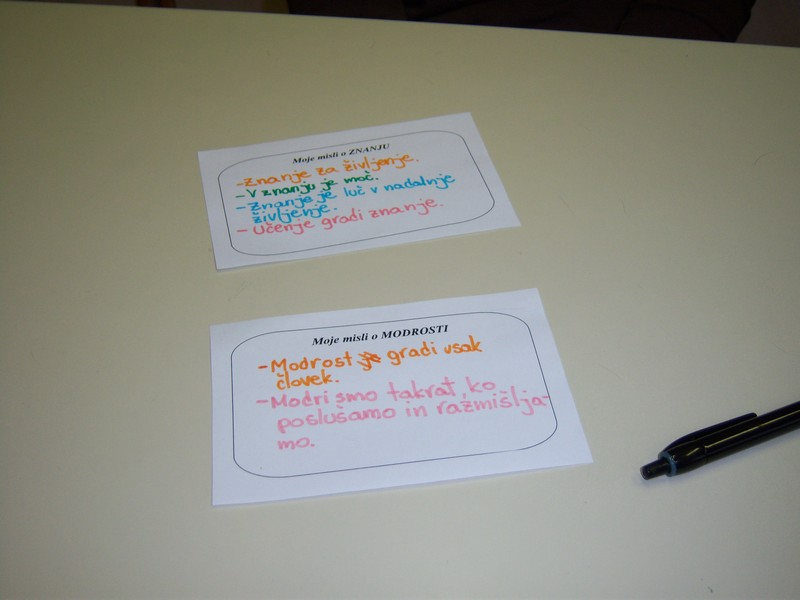 Moje misli o ZNANJU
- Znanje za življenje.
- V znanju je moč.
- Znanje je luč v nadalnje
življenje.
- Učenje gradi znanje.
Moje misli o MODROSTI
- Modrost gradi vsak
človek.
- Modri smo takrat, ko
poslušamo in razmišlja-
mo.